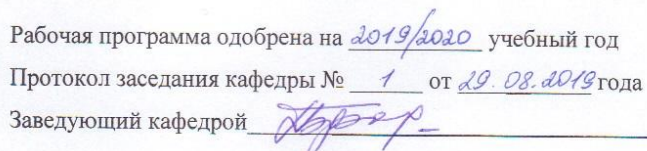 Рабочая программа одобрена на 2019/2020 учебный год
Протокол заседания кафедры № 1 от 29.08.2019 года
Заведующий кафедрой